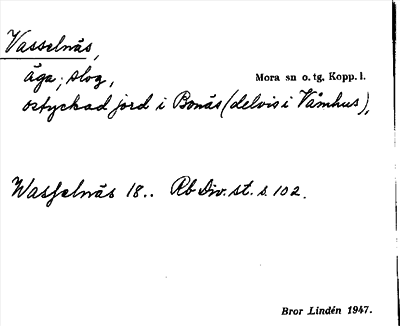 Vasselnäs,
äga, skog,
Mora sn o. tg, Kopp. l.
ostyckad jord i Bonäs (delvis i Våmhus),
Wasselnäs 18.. Rb Div. st. s. 102.
Bror Lindén 1947.